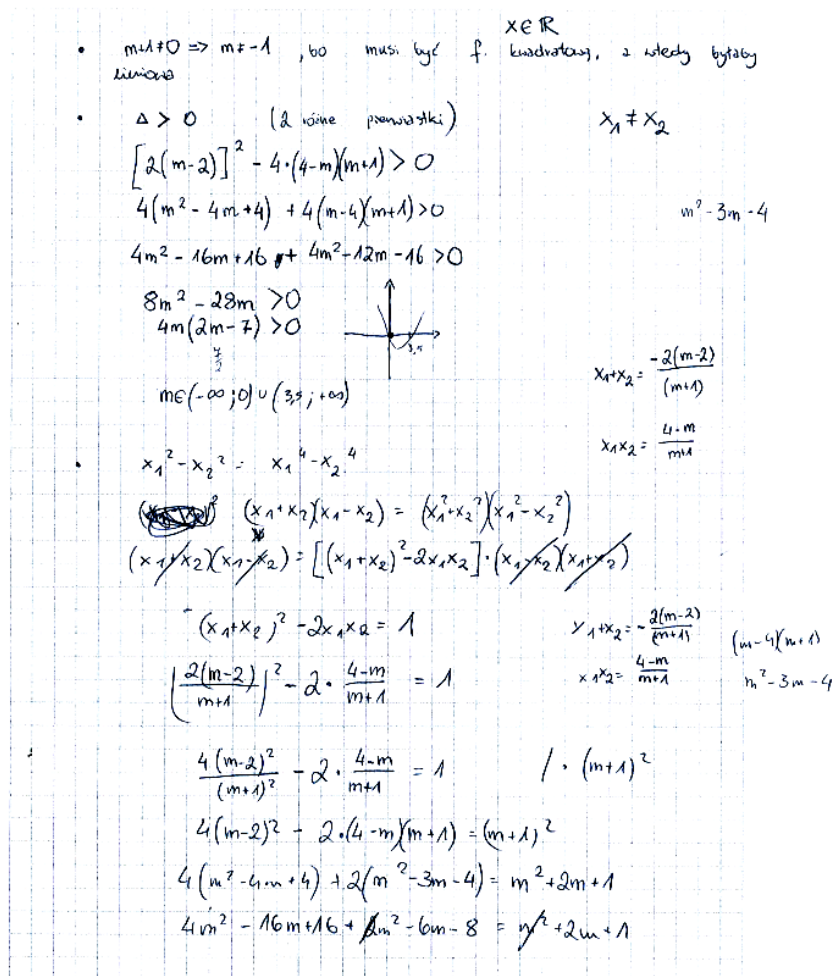 x∈ℝ
• m+1≠0 => m≠-1 , bo musi być f. kwadratowa, a wtedy byłaby
liniowa
• Δ > 0 (2 różne pierwiastki) x₁ ≠ x₂
[2(m-2)]² - 4·(4-m)(m+1) > 0
4(m² - 4m+4) + 4(m-4)(m+1)>0 m²-3m-4
4m² - 16m+16 + 4m²-12m-16 >0
8m² - 28m >0
4m(2m-7) >0
7/2
3,5
m∈(-∞;0)∪(3,5;+∞)
x₁+x₂ = -2(m-2)/(m+1)
x₁x₂ = 4-m/m+1
• x₁²-x₂² = x₁⁴-x₂⁴
(x₁+x₂)(x₁-x₂) = (x₁²+x₂²)(x₁²-x₂²)
(x₁+x₂)(x₁-x₂) = [(x₁+x₂)²-2x₁x₂]·(x₁-x₂)(x₁+x₂)
(x₁+x₂)² -2x₁x₂ = 1 x₁+x₂ = -2(m-2)/(m+1) (m-4)(m+1)
(2(m-2)/m+1)² - 2· 4-m/m+1 = 1 x₁x₂ = 4-m/m+1 m²-3m-4
4(m-2)²/(m+1)² - 2· 4-m/m+1 = 1 /·(m+1)²
4(m-2)² - 2·(4-m)(m+1) = (m+1)²
4(m²-4m+4) + 2(m²-3m-4) = m²+2m+1
4m² - 16m+16 + 2m²-6m-8 = m²+2m+1